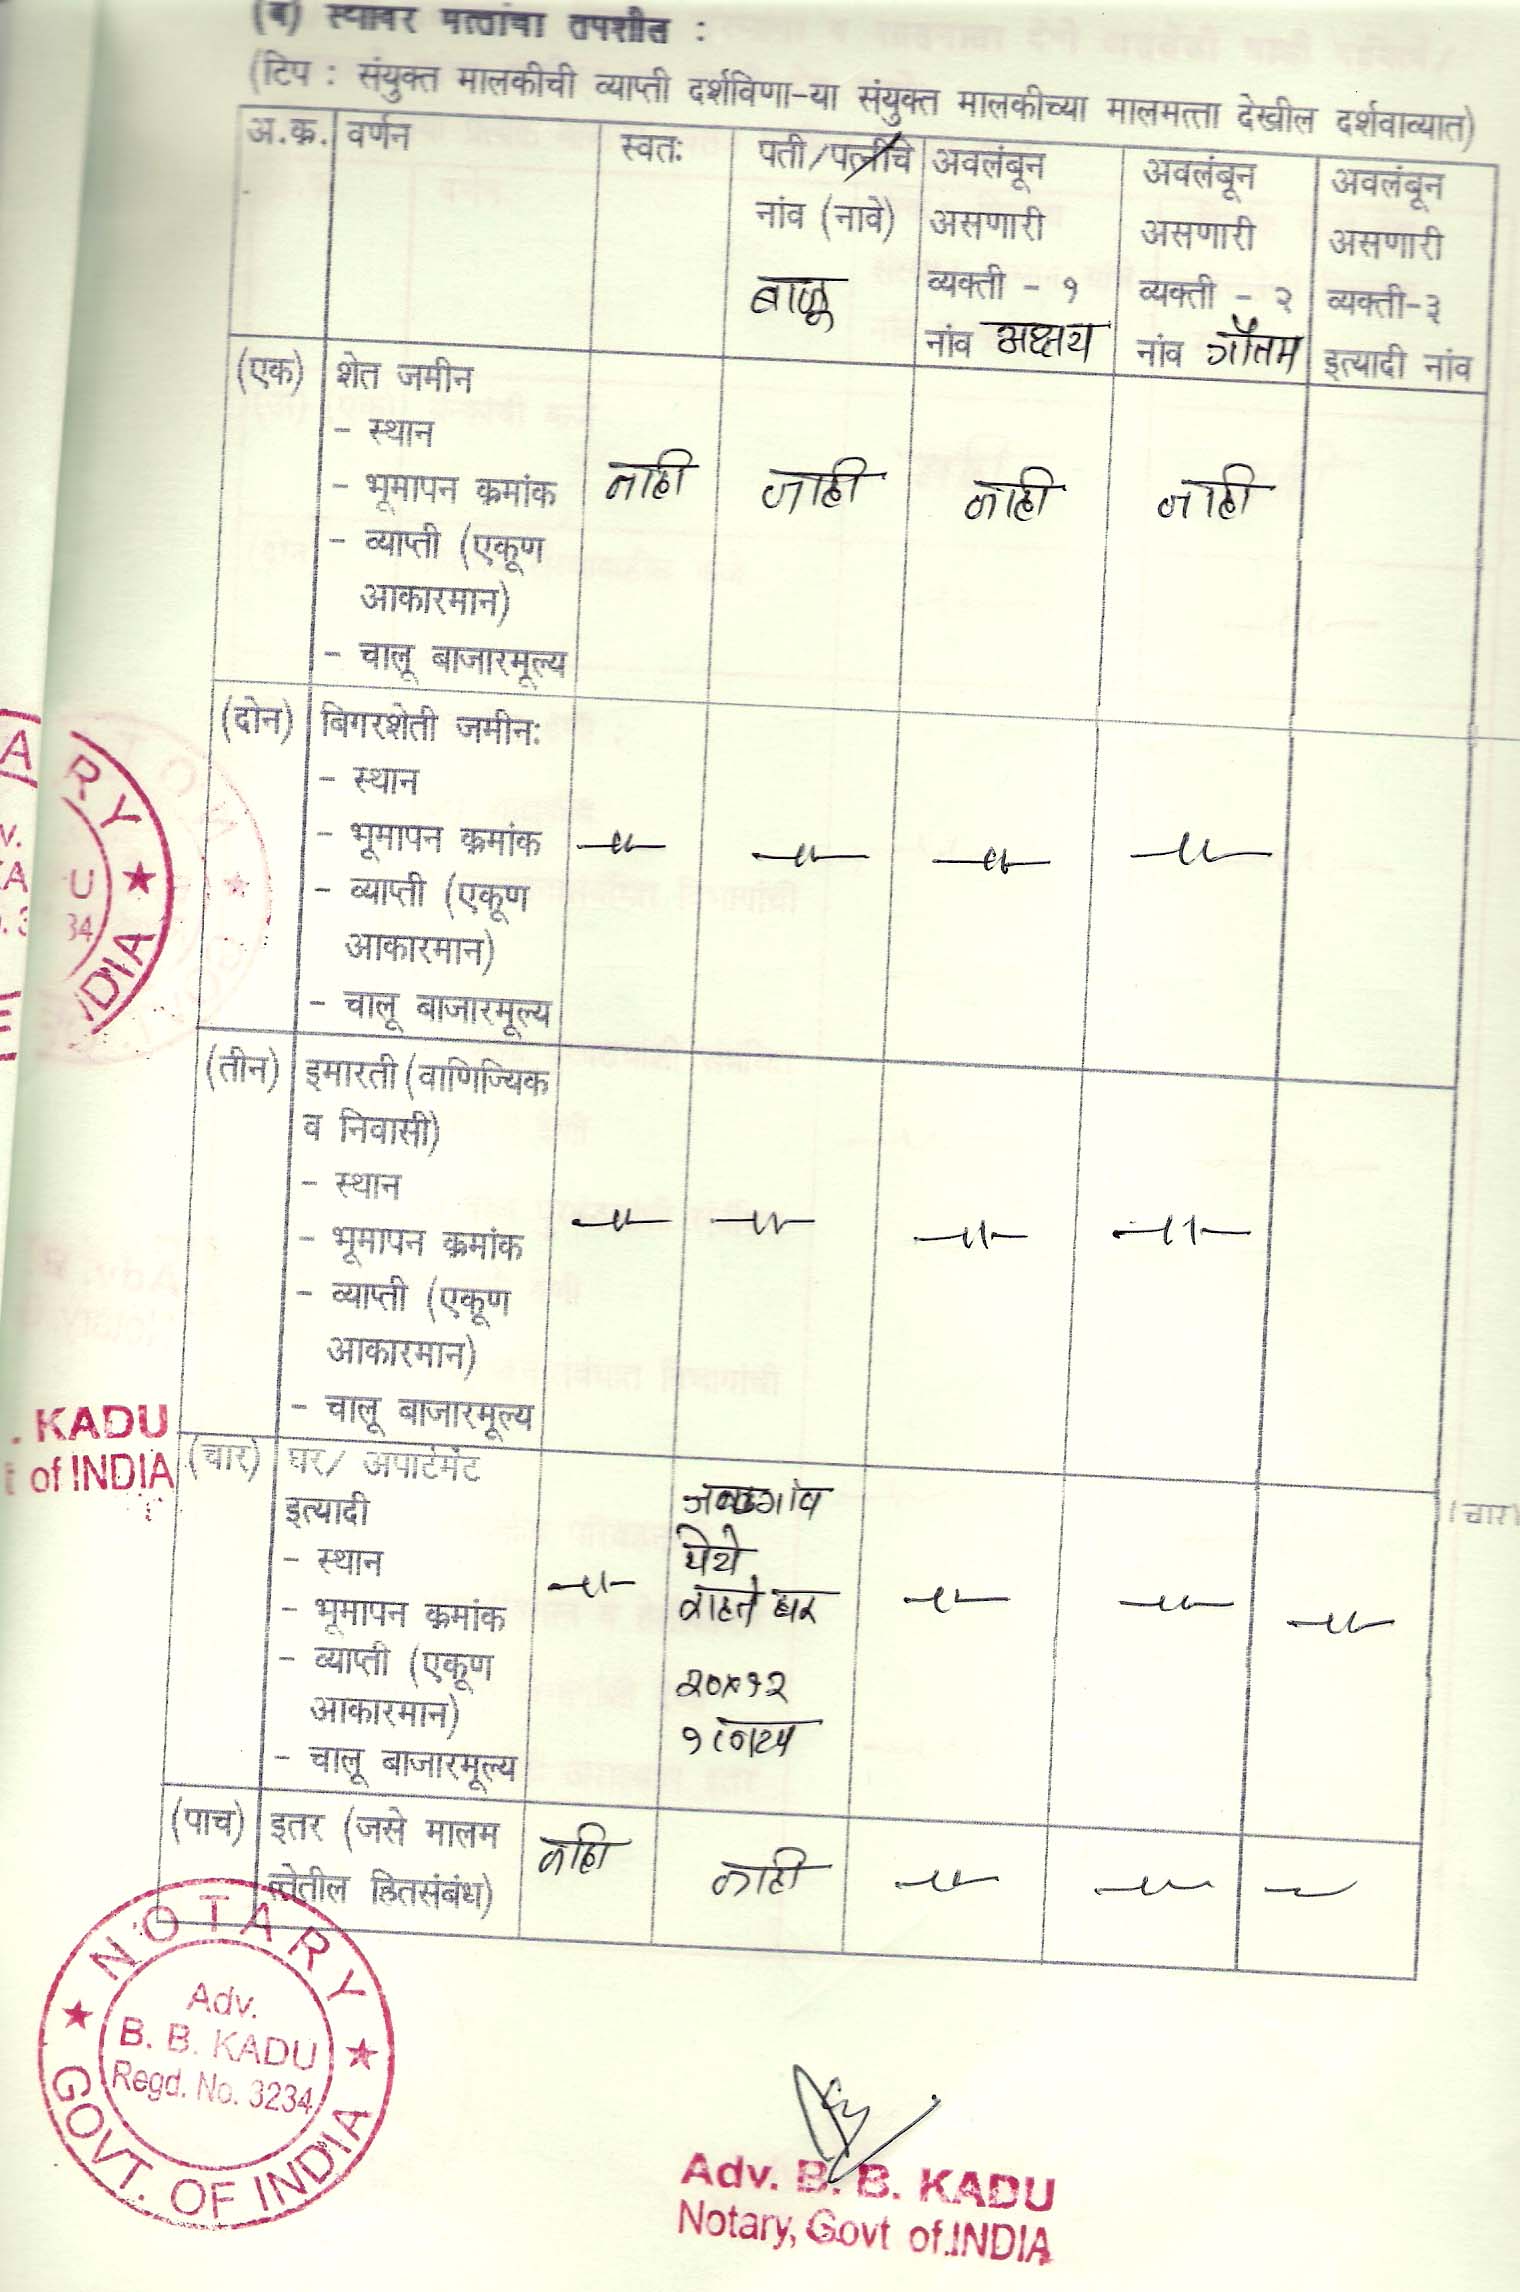 (ब) स्थावर मत्तांचा तपशील :
(टिप : संयुक्त मालकीची व्याप्ती दर्शविणा-या संयुक्त मालकीच्या मालमत्ता देखील दर्शवाव्यात)
अ.क्र. वर्णन स्वतः पती/पत्नीचे अवलंबून अवलंबून अवलंबून
नांव (नावे) असणारी असणारी असणारी
बाळू व्यक्ती - १ व्यक्ती - २ व्यक्ती-३
नांव अक्षय नांव गौतम इत्यादी नांव
(एक) शेत जमीन
- स्थान
- भूमापन क्रमांक नाही नाही नाही नाही
- व्याप्ती (एकूण
आकारमान)
- चालू बाजारमूल्य
(दोन) बिगरशेती जमीनः
- स्थान
- भूमापन क्रमांक -॥- -॥- -॥- -॥-
- व्याप्ती (एकूण
आकारमान)
- चालू बाजारमूल्य
(तीन) इमारती (वाणिज्यिक
व निवासी)
- स्थान
- भूमापन क्रमांक -॥- -॥- -॥- -॥-
- व्याप्ती (एकूण
आकारमान)
- चालू बाजारमूल्य
(चार) घर/ अपार्टमेंट
इत्यादी
- स्थान येथे
- भूमापन क्रमांक -॥- राहते घर -॥- -॥- -॥-
- व्याप्ती (एकूण
आकारमान) २०x१२
- चालू बाजारमूल्य
(चार)
(पाच) इतर (जसे मालम नाही नाही -॥- -॥-
त्तेतील हितसंबंध)
ARY
U
34
INDIA
. KADU
t of INDIA
NOTARY
Adv.
B. B. KADU
Regd. No. 3234
GOVT. OF INDIA
Adv. B. B. KADU
Notary, Govt of.INDIA